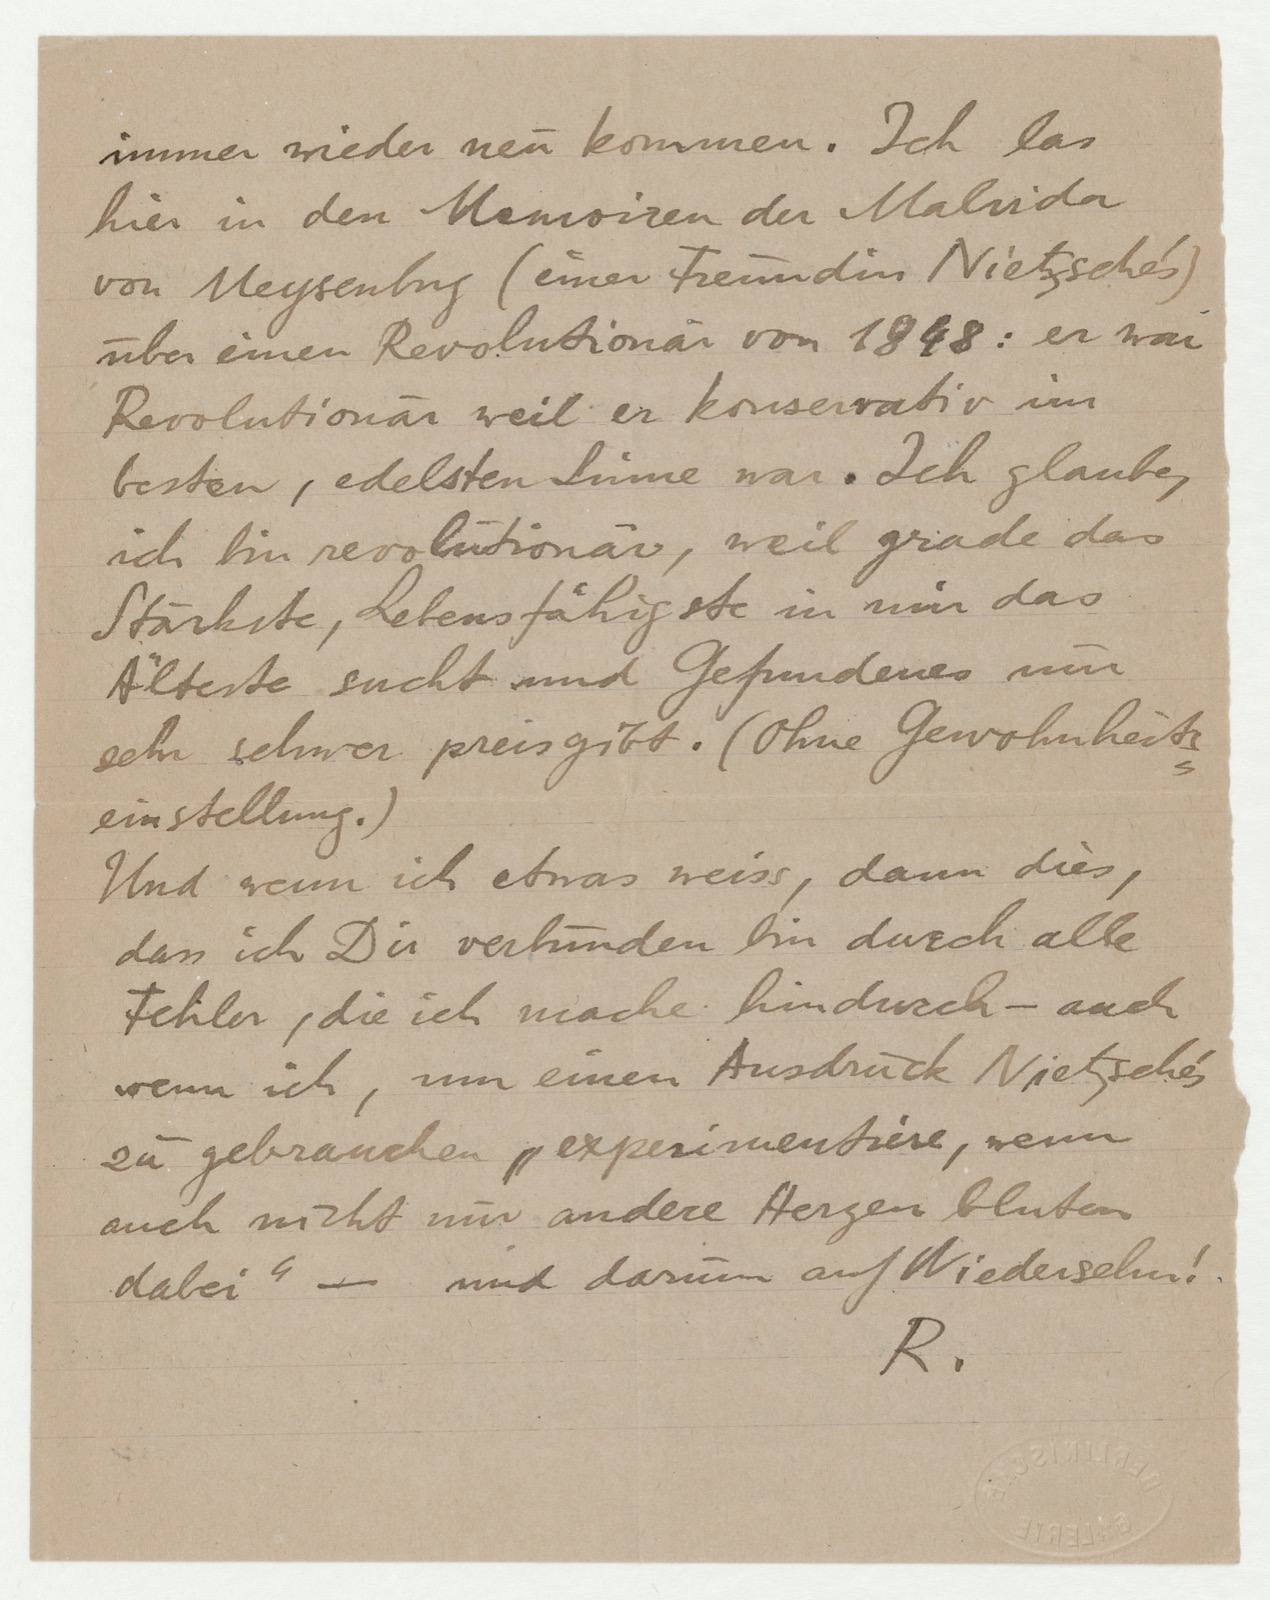 immer wieder neu kommen. Ich las
hier in den Memoiren der Malvida
von Meysenbug (einer Freundin Nietzsche's)
über einen Revolutionär von 1848: er war
Revolutionär weil er konservativ im
besten, edelsten Sinne war. Ich glaube,
ich bin revolutionär, weil grade das
Stärkste, Lebensfähigste in mir das
Älteste sucht und Gefundenes nur
sehr schwer preisgibt. (Ohne Gewohnheits=
einstellung.)
Und wenn ich etwas weiss, dann dies,
dass ich Dir verbunden bin durch alle
Fehler, die ich mache hindurch – auch
wenn ich, um einen Ausdruck Nietzsche's
zu gebrauchen „experimentiere, wenn
auch nicht nur andere Herzen bluten
dabei“ — und darum auf Wiedersehn!
R.
BERLINISCHE
GALERIE